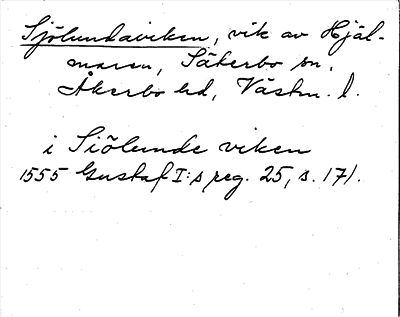 Sjölundaviken, vik av Hjäl-
maren, Säterbo sn,
Åkerbo hd, Västm. l.
i Siölunde viken
1555 Gustaf I:s reg. 25, s. 171.